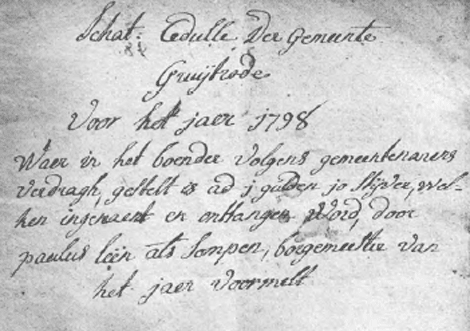 Schat: Cedulle Der gemeente
Gruijtrode
Voor het jaer 1798
Waer in het boender volgens gemeentenaeren
Verdragh, gestelt is ad j gulden jo stijver, wel-
ken ingemaent en ontfangen Word, door
paulus leën als Sompen, borgemeester van
het jaer voormelt